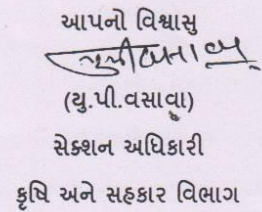 આપનો વિશ્વાસુ
(યુ.પી.વસાવા)
સેક્શન અધિકારી
કૃષિ અને સહકાર વિભાગ